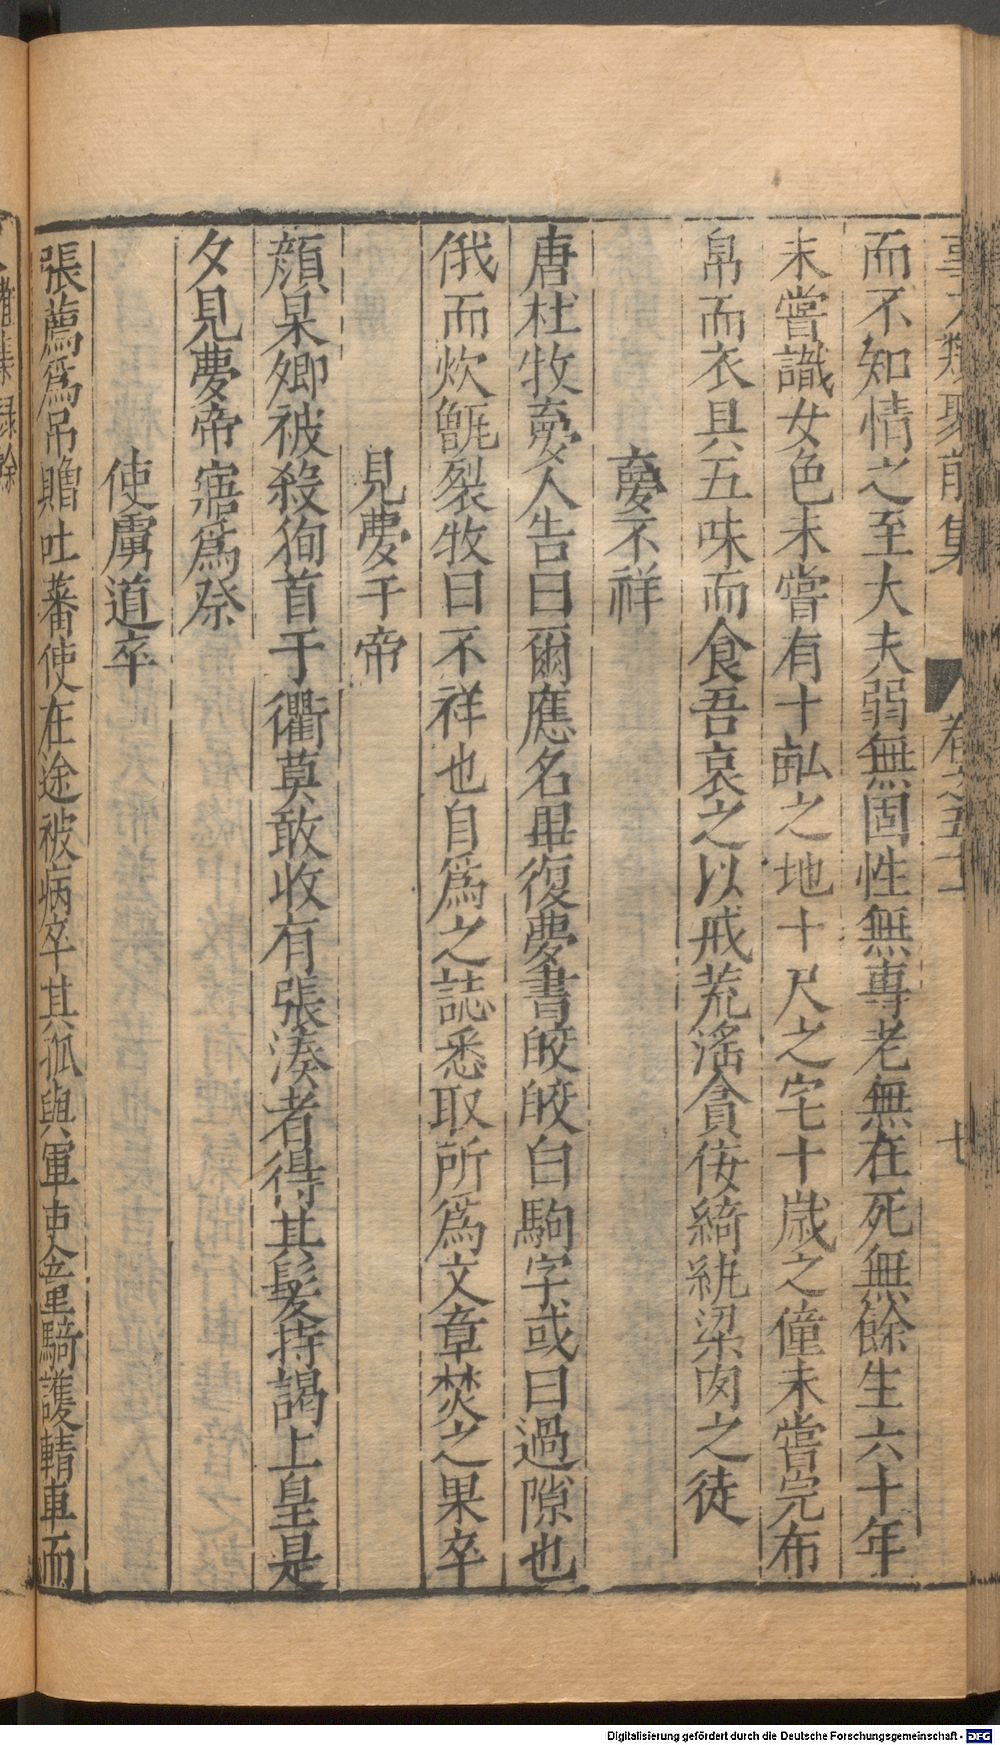 事文類聚前集 卷之五十 七
而不知情之至大夫弱無固性無專老無在死無餘生六十年
未嘗識女色未嘗有十畝之地十尺之宅十歲之僮未嘗完布
帛而衣具五味而食吾哀之以戒荒滛貪侫綺紈梁肉之徒
夢不祥
唐杜牧夢人告曰爾應名畢復夢書皎皎白駒字或曰過隙也
俄而炊甑裂牧曰不祥也自爲之誌悉取所爲文章焚之果卒
見夢于帝
顔杲卿被殺徇首于衢莫敢收有張湊者得其髮持謁上皇是
夕見夢帝寤爲祭
使虜道卒
張薦爲吊贈吐蕃使在途被病卒其孤與軍吏童騎護輤車而
Digitalisierung gefördert durch die Deutsche Forschungsgemeinschaft - DFG